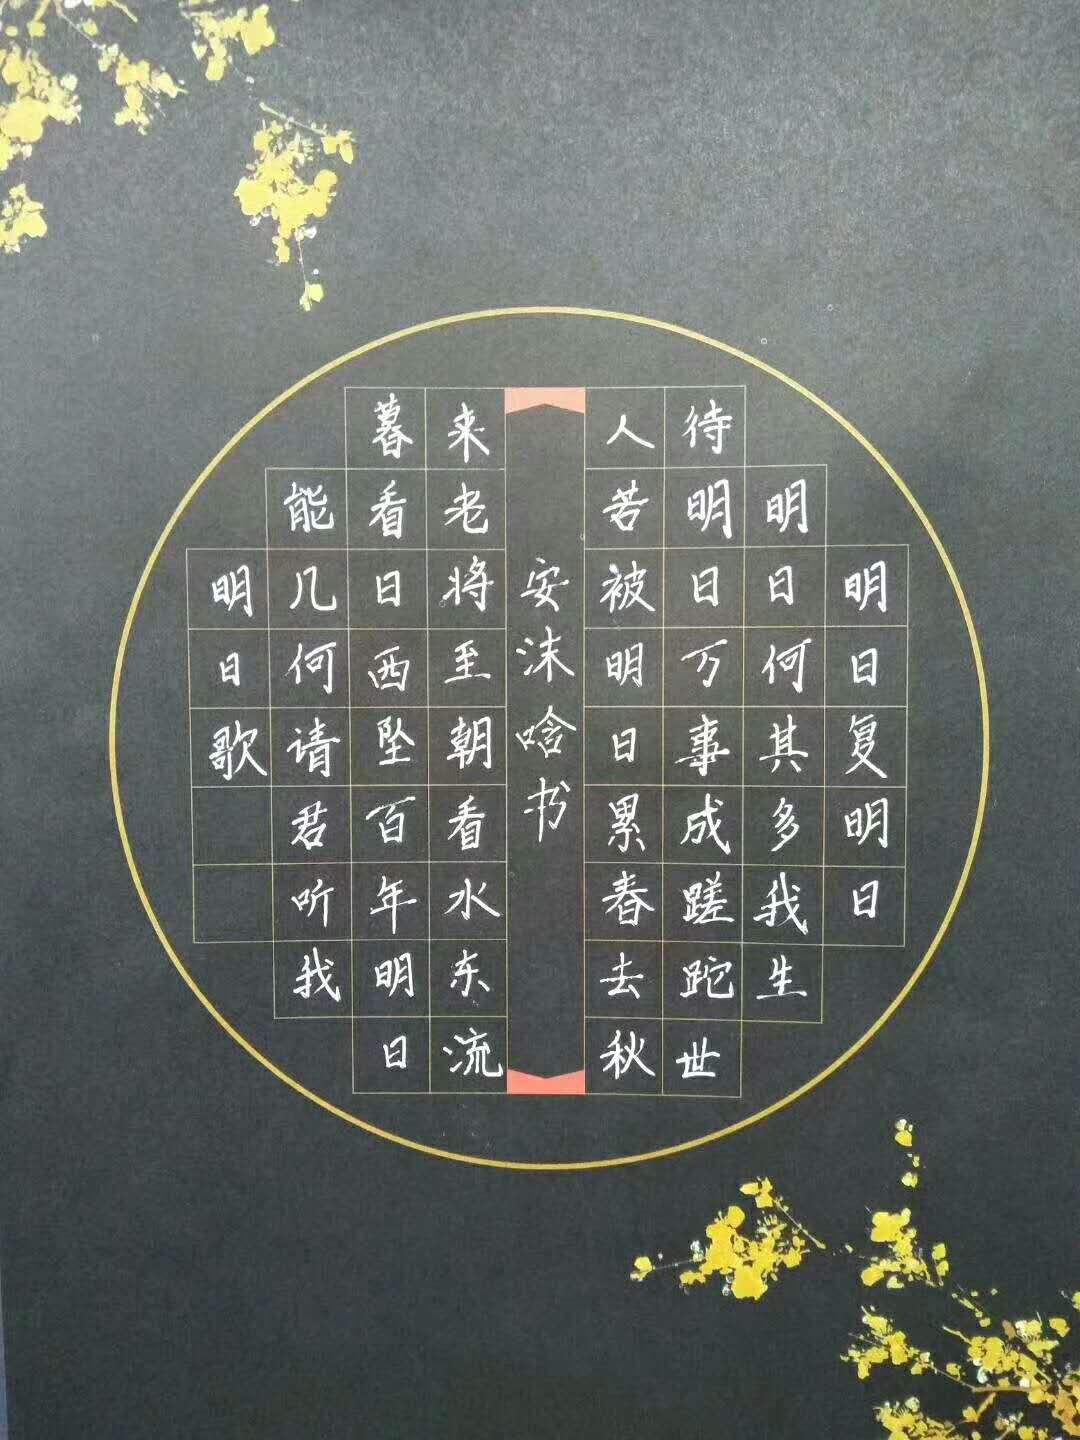 明日复明日
明日何其多我生
待明日万事成蹉跎世
人若被明日累春去秋
安沫唅书
来老将至朝看水东流
暮看日西坠百年明日
能几何请君听我
明日歌